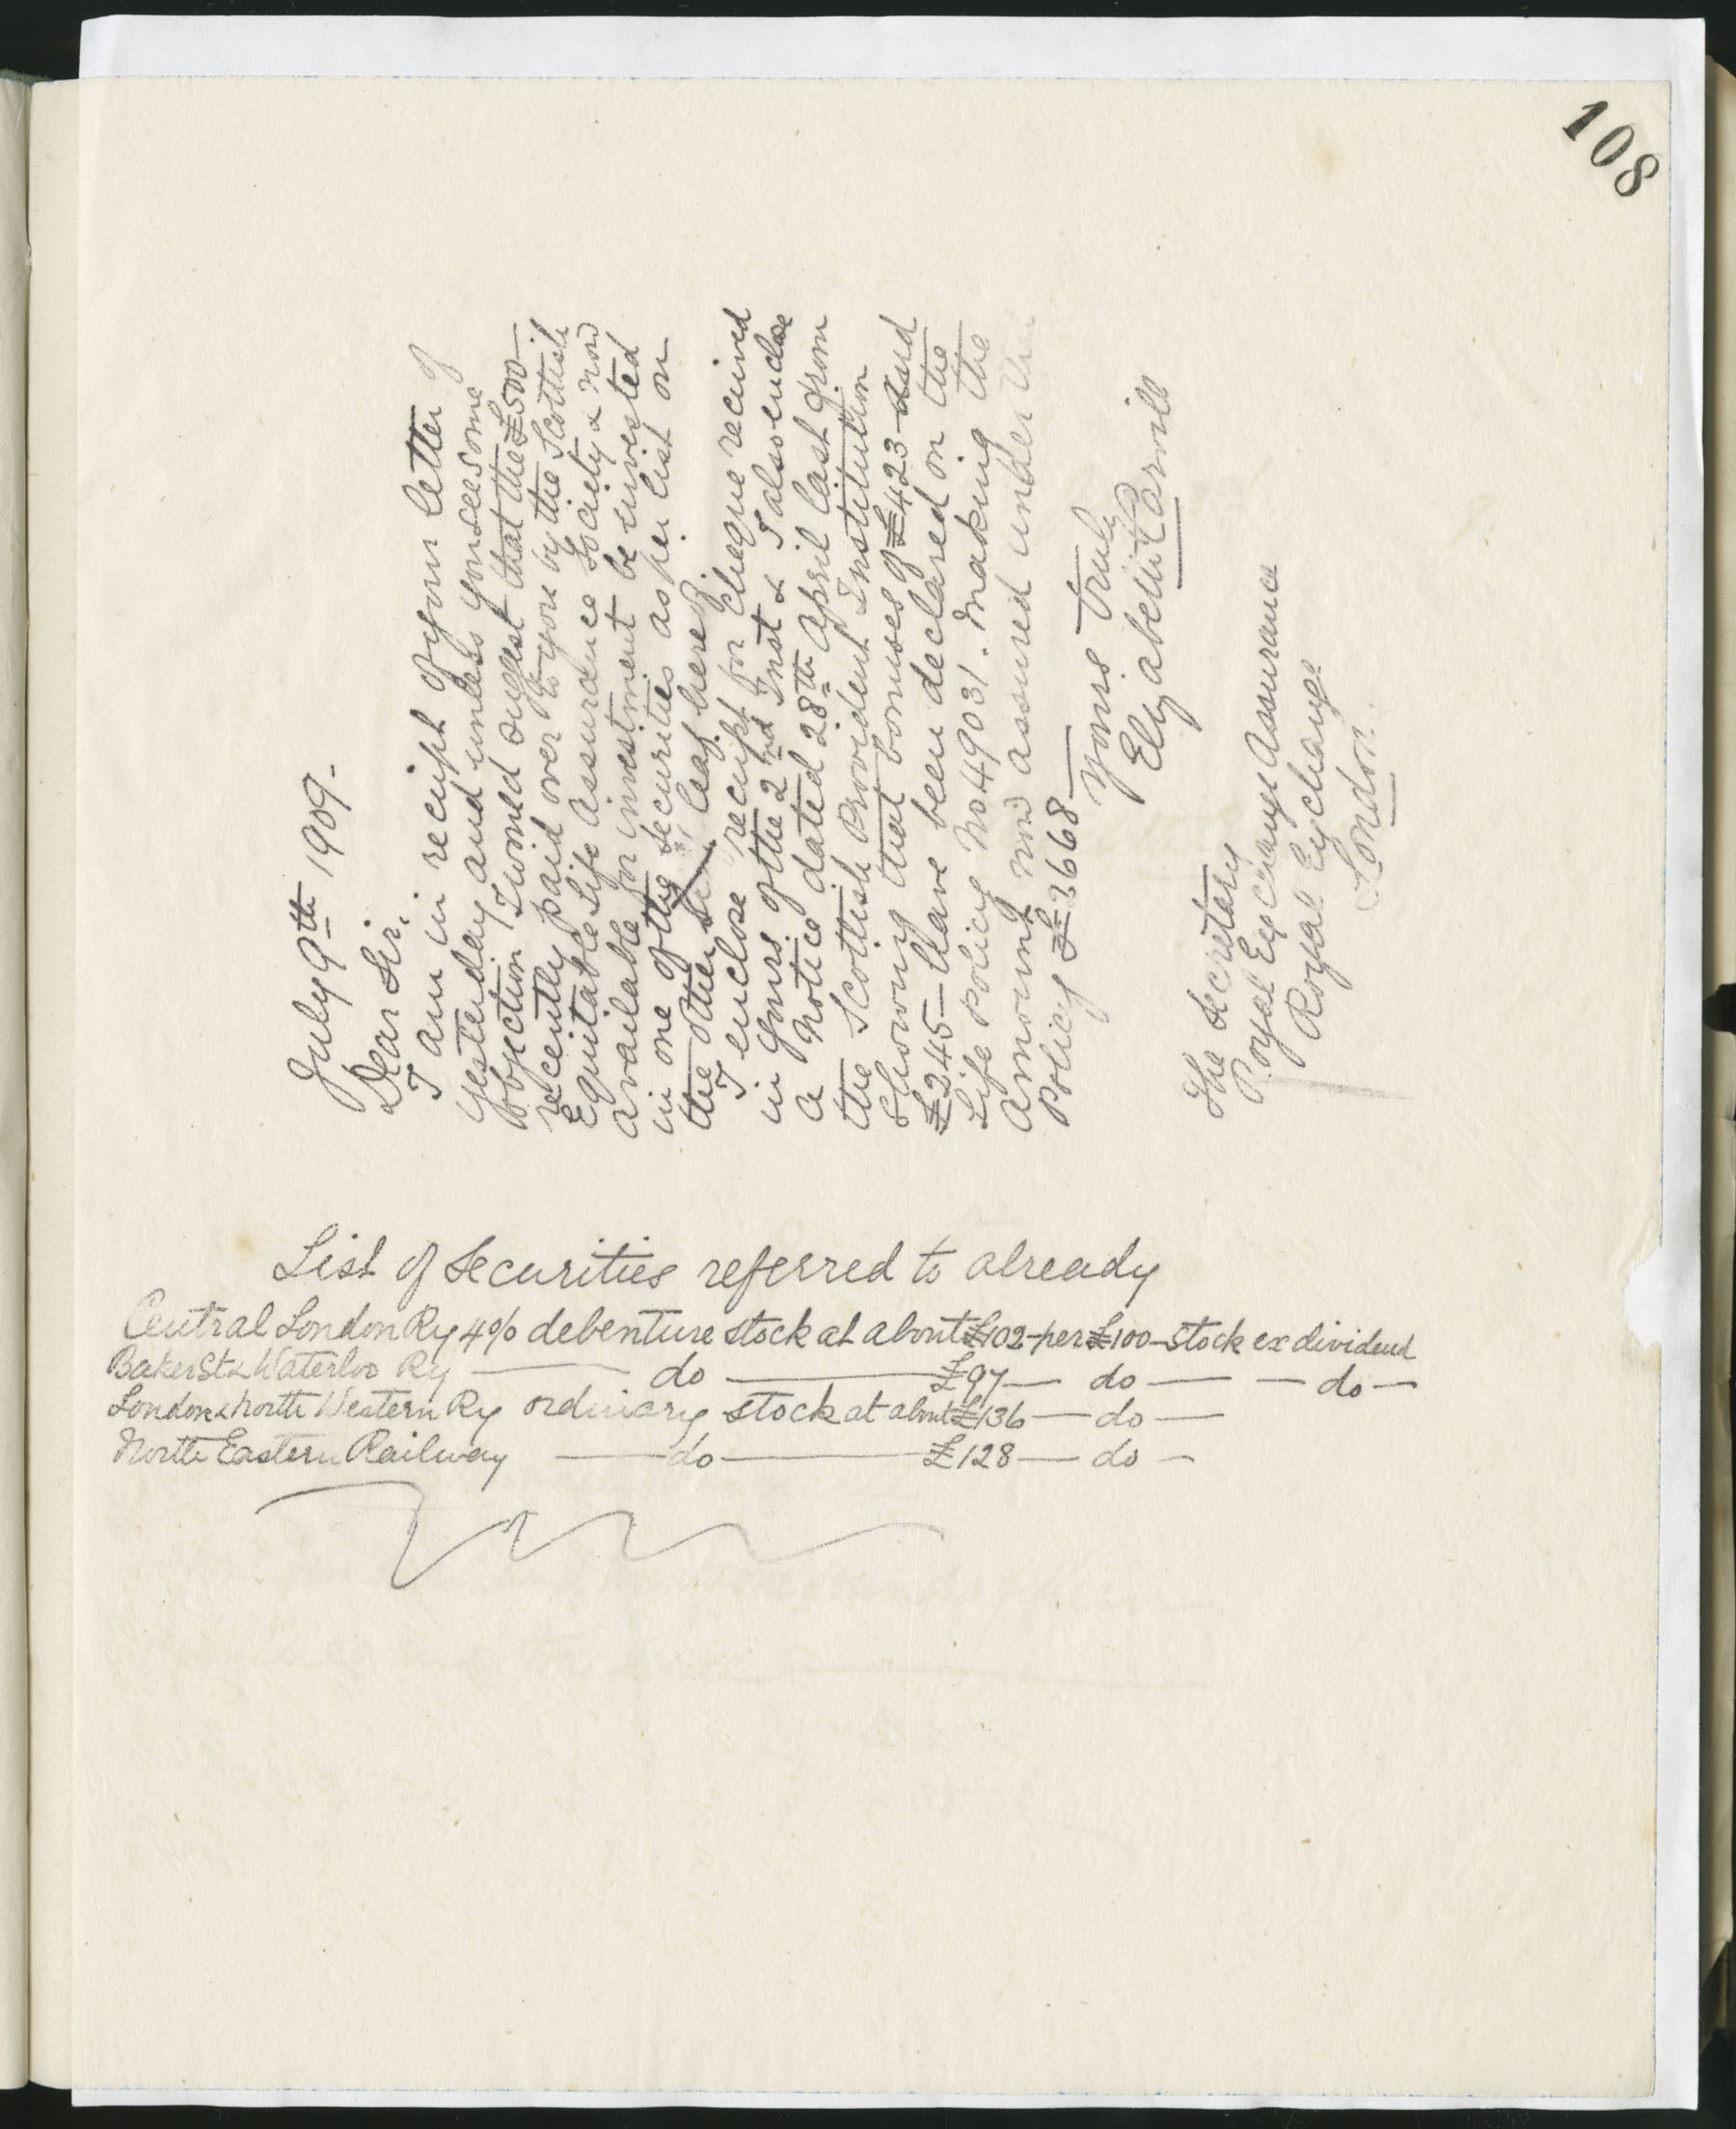 108
July 9th 1909.
Dear Sir.
I am in receipt of your letter of
yesterday and unless you see some
objection I would suggest that the £500—
recently paid over to you by the Scottish
Equitable Life Assurance Society & now
available for investment be invested
in one of the securities as per list on
the other leaf hereof.
I enclose receipt for cheque received
in yours of the 2nd Inst & I also enclose
a notice dated 28th April last from
the Scottish Provident Institution
showing that bonuses of £423 and
£245— have been declared on the
Life Policy No 49031. making the
amount now assured under the
Policy £2668—
Yours truly
Elizabeth Carvill
The Secretary
Royal Exchange Assurance
Royal Exchange
London.
List of Securities referred to already
Central London Ry 4% debenture stock at about £102— per £100— stock ex dividend
Baker St & Waterloo Ry — do — £97— do — — do —
London & North Western Ry ordinary stock at about £136— do —
North Eastern Railway — do — £128— do —